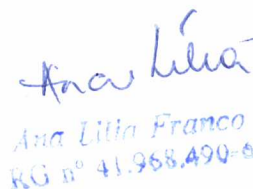 Ana Lília
Ana Lilia Franco
RG nº 41.968.490-6